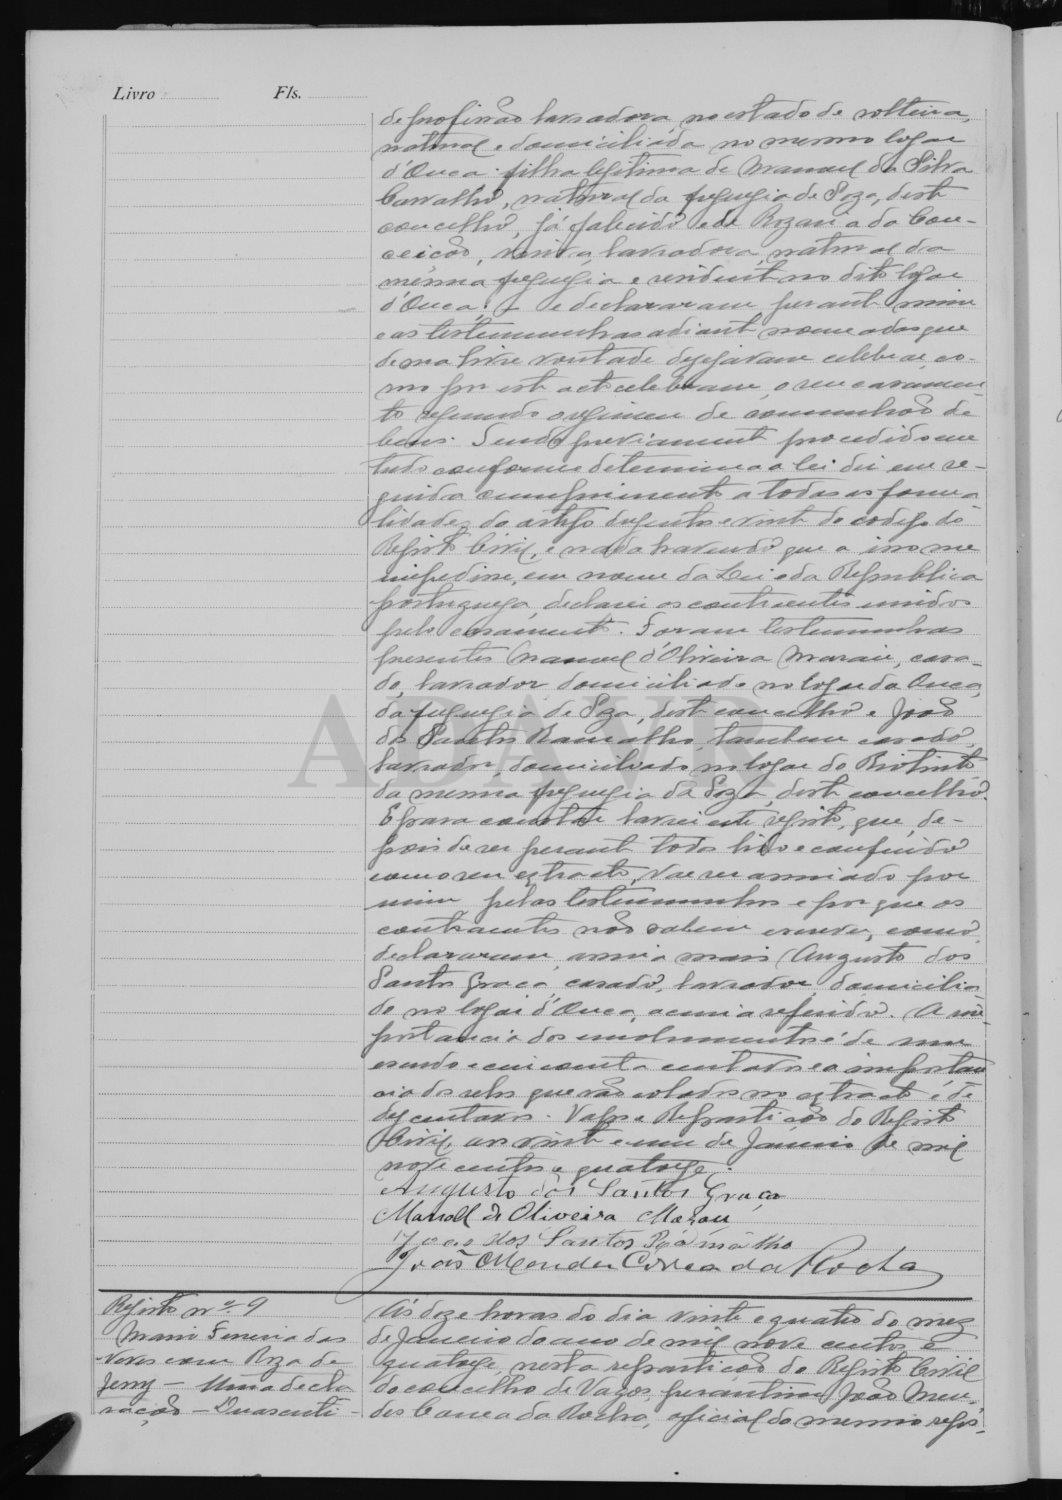 Livro Fls.
de profissão lavradora no estado de solteira,
natural e domiciliada no mesmo logar
d'Ouca, filha legitima de Manuel da Silva
Carvalho, natural da freguesia de Soza, deste
concelho, já falecido e de Rozaria da Con-
ceição, viuva, lavradora, natural da
mesma freguesia e residente no dito logar
d'Ouca; e declararam perante mim
e as testemunhas adiante nomeadas que
de sua livre vontade desejavam celebrar, co-
mo por este acto celebram, o seu casamen
to segundo o regimen de comunhão de
bens. Sendo previamente procedido em
tudo conforme determina a lei dei em se-
guida cumprimento a todas as forma
lidades do artigo duzentos e vinte do codigo do
Registo Civil, e nada havendo que a isso me
impedisse, em nome da Lei e da Republica
portugueza, declarei os contraentes unidos
pelo casamento. Foram testemunhas
presentes Manuel d'Oliveira Marau, casa-
do, lavrador domiciliado no logar da Ouca,
da freguesia de Soza, deste concelho e João
dos Santos Ramalho, tambem casado,
lavrador, domiciliado no logar do Riotinto
da mesma freguesia da Soza, deste concelho.
E para constar lavrei este registo, que, de-
pois de ser perante todos lido e conferido
com o seu extracto, vae ser assinado por
mim pelas testemunhas e por que os
contraentes não sabem escrever, como
declararam, assina mais Augusto dos
Santos Graça casado, lavrador, domicilia
do no logar d'Ouca, acima referido. A im-
portancia dos emolumentos é de um
escudo e cincoenta centavos e a importan
cia dos selos que vão colados no extracto é de
dez centavos. Vagos e Repartição do Registo
Civil aos vinte e um de Janeiro de mil
nove centos e quatorze.
Augusto dos Santos Graça
Manoel de Oliveira Marau
João dos Santos Ramalho
João Mendes Correa da Rocha
Registo nº 9
Mario Ferreira das
Neves com Roza de
Jesus — Uma decla
ração — Quarenti-
Ás doze horas do dia vinte e quatro do mez
de Janeiro do ano de mil nove centos e
quatorze, nesta repartição do Registo Civil
do concelho de Vagos, perante mim João Men-
des Correa da Rocha, oficial do mesmo regis-